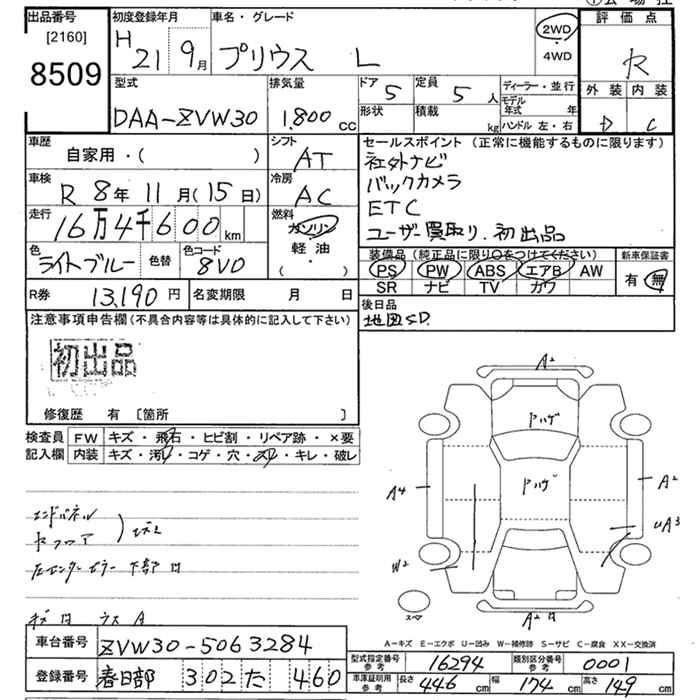 出品番号
[2160]
8509
初度登録年月
H 21 9月
車名・グレード
プリウス L
2WD
4WD
評価点
R
外装 内装
D C
型式
DAA-ZVW30
排気量
1,800 CC
ドア 5
定員 5 人
形状
積載 kg
ディーラー・並行
モデル年式 年
ハンドル 左・右
車歴
自家用・( )
シフト
AT
車検
R 8年 11月(15日)
冷房
AC
走行
16万4千600 km
燃料
ガソリン
軽・油
( )
色
ライトブルー
色替
色コード
8V0
R券 13,190円
名変期限 月 日
セールスポイント(正常に機能するものに限ります)
社外ナビ
バックカメラ
ETC
ユーザー買取り.初出品
装備品(純正品に限り○をつけてください)
PS PW ABS エアB AW
SR ナビ TV カワ
新車保証書
有・無
後日品
地図SD.
注意事項申告欄(不具合内容等は具体的に記入して下さい)
初出品
修復歴 有 [箇所 ]
検査員 FW キズ・飛石・ヒビ割・リペア跡・×要
記入欄 内装 キズ・汚れ・コゲ・穴・スレ・キレ・破レ
エンドパネル
下部
A2
ドハゲ
ドハゲ
A4
A2
UA3
W2
スペア
A2
A-キズ E-エクボ U-凹み W-補修跡 S-サビ C-腐食 XX-交換済
車台番号 ZVW30-5063284
登録番号 春日部 302 た 460
型式指定番号 参考 16294
類別区分番号 参考 0001
車庫証明用 参考 長さ 446 cm 幅 174 cm 高さ 149 cm